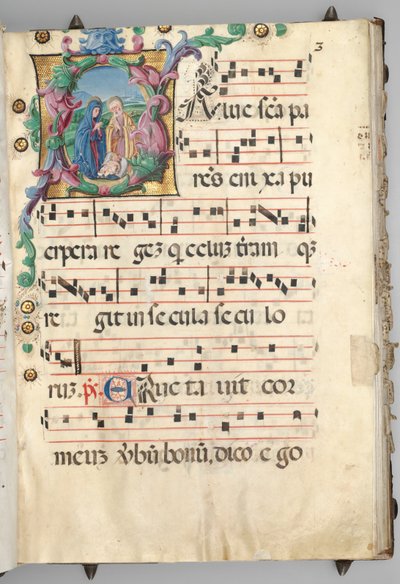 3
SAlue scā pa
rēs eni xa pu
erpera re geʒ q̄ celuʒ tr̄am qʒ
re git in se cula se cu lo
ruʒ. p̄s. ERucta uit cor
meuʒ v̄bū bonū, dico e go